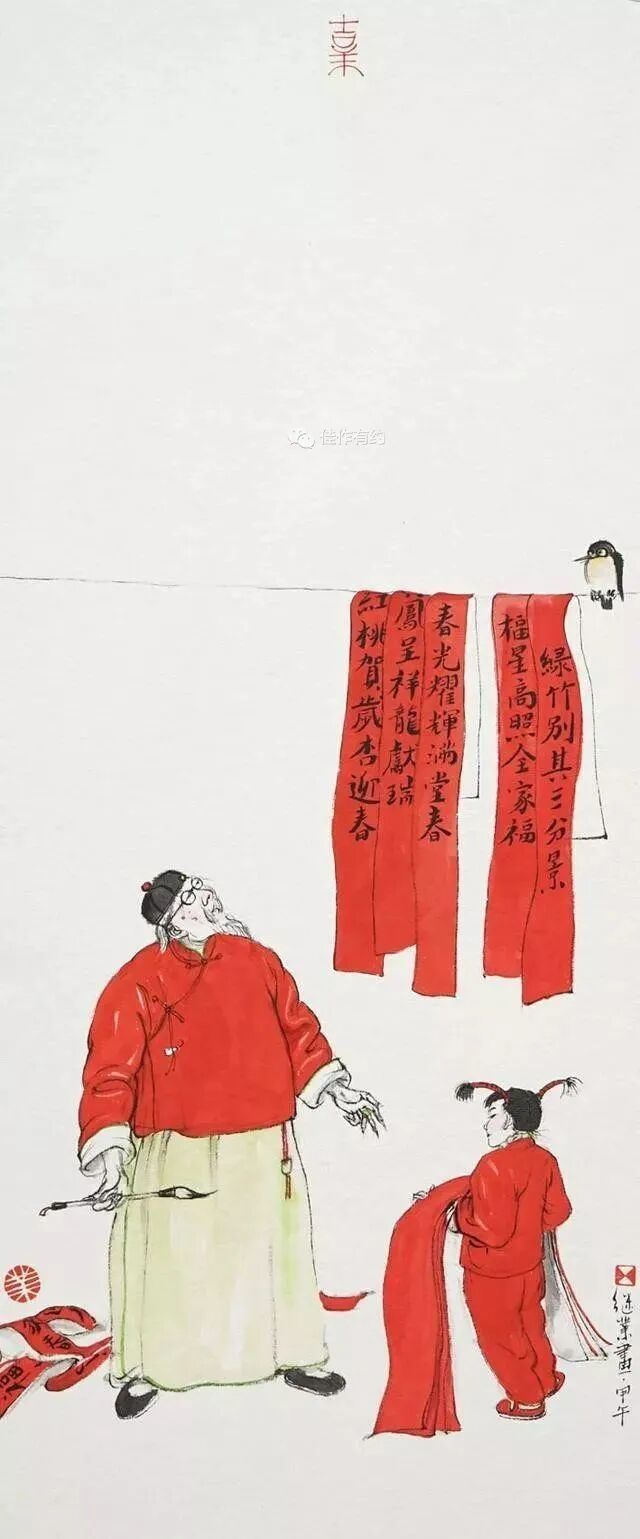 佳作有约
緑竹别其三分景
福星高照全家福
春光耀輝滿堂春
鳳呈祥龍獻瑞
紅桃賀歲杏迎春
继業畫·甲午